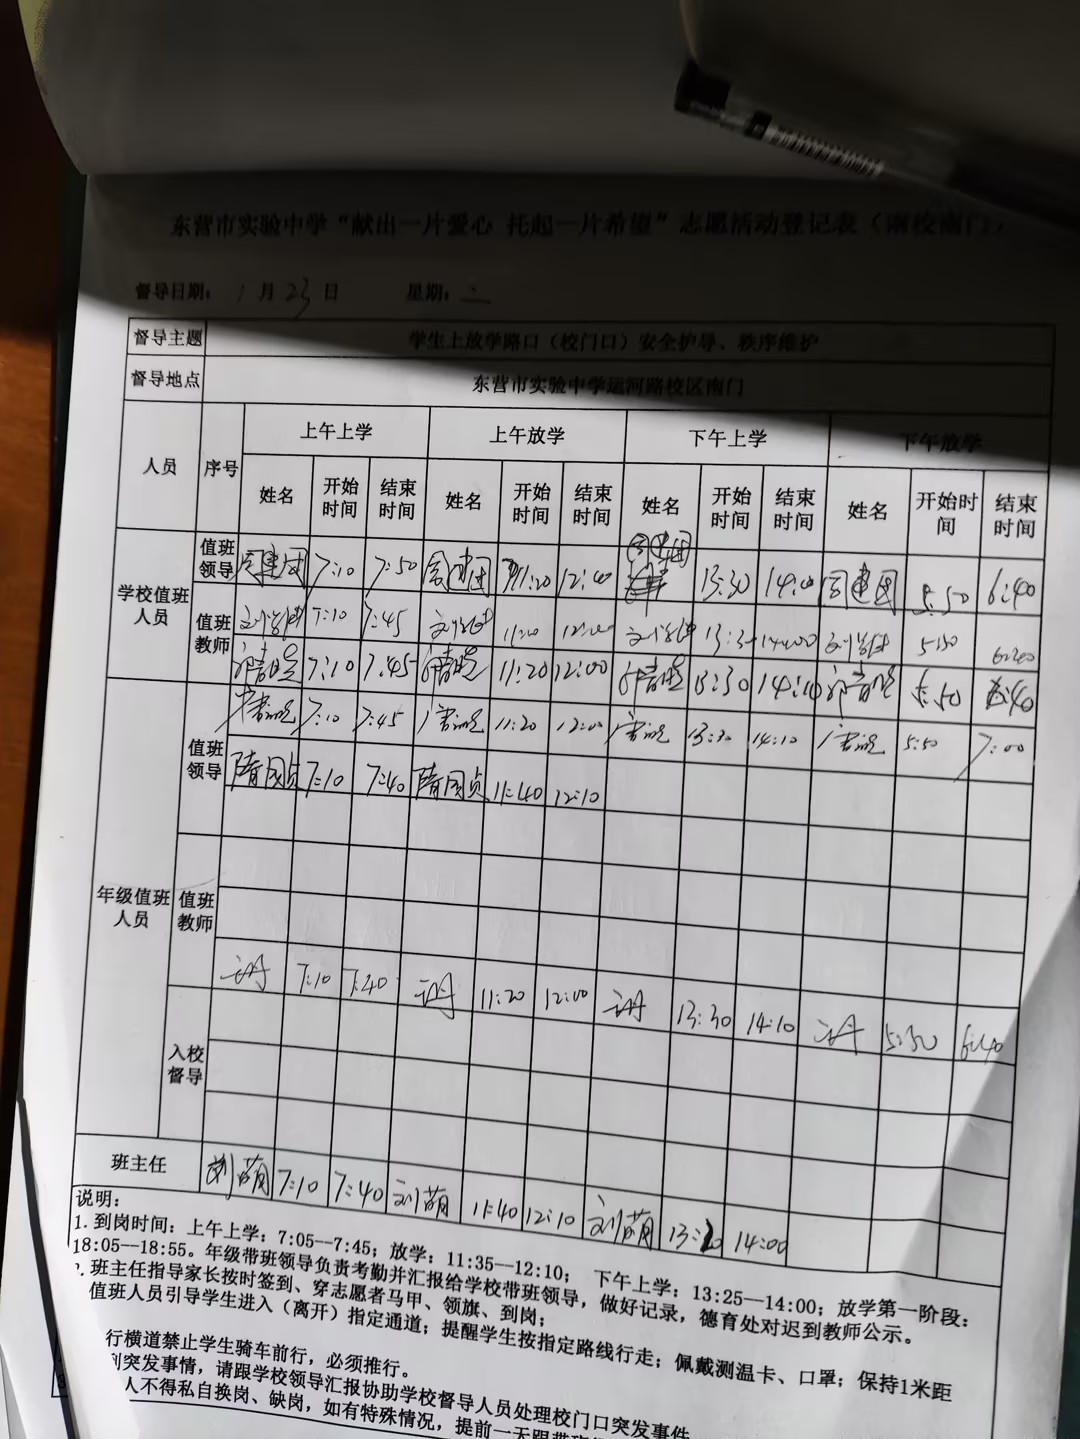 东营市实验中学“献出一片爱心 托起一片希望”志愿活动登记表（南校南门）
督导日期： 1月23日 星期：二
督导主题 学生上放学路口（校门口）安全护导、秩序维护
督导地点 东营市实验中学运河路校区南门
人员 序号 上午上学 上午放学 下午上学 下午放学
姓名 开始时间 结束时间 姓名 开始时间 结束时间 姓名 开始时间 结束时间 姓名 开始时间 结束时间
学校值班人员 值班领导 7:10 7:50 11:20 12:00 13:30 14:10 5:50 6:40
值班教师 7:10 7:45 13:30 5:50
7:10 7:45 11:20 12:00 13:30 14:10 5:50 6:40
年级值班人员 值班领导 7:10 7:45 11:20 12:00 13:30 14:10 5:50 7:00
隋国贞 7:10 7:40 隋国贞 11:40 12:10
值班教师
7:10 7:40 11:20 12:00 13:30 14:10 5:50 6:40
入校督导
班主任 刘萌 7:10 7:40 刘萌 11:40 12:10 刘萌 13:20 14:00
说明：
1. 到岗时间：上午上学：7:05--7:45；放学：11:35--12:10； 下午上学：13:25--14:00；放学第一阶段：
18:05--18:55。年级带班领导负责考勤并汇报给学校带班领导，做好记录，德育处对迟到教师公示。
2. 班主任指导家长按时签到、穿志愿者马甲、领旗、到岗；
值班人员引导学生进入（离开）指定通道；提醒学生按指定路线行走；佩戴测温卡、口罩；保持1米距
行横道禁止学生骑车前行，必须推行。
突发事情，请跟学校领导汇报协助学校督导人员处理校门口突发事件
人不得私自换岗、缺岗，如有特殊情况，提前一天跟带班